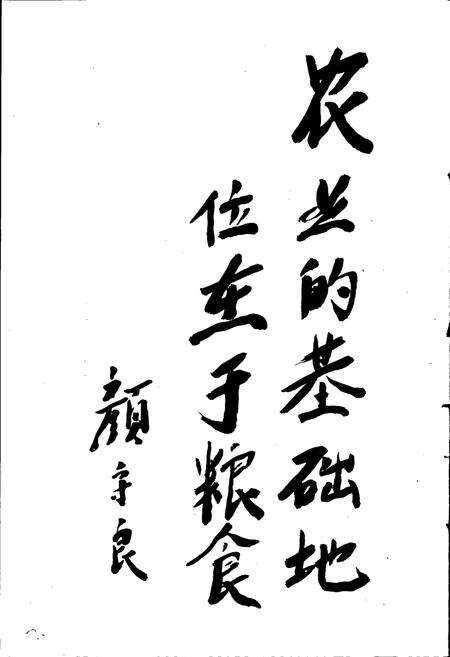 农业的基础地
位在于粮食
顔守良